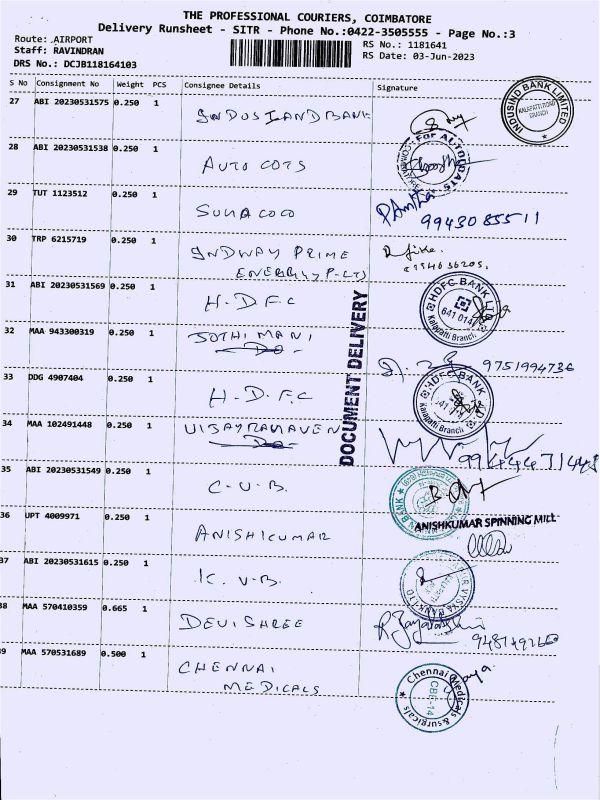 THE PROFESSIONAL COURIERS, COIMBATORE
Delivery Runsheet - SITR - Phone No.:0422-3505555 - Page No.:3
Route: AIRPORT
RS No.: 1181641
Staff: RAVINDRAN
RS Date: 03-Jun-2023
DRS No.: DCJB118164103
S No Consignment No Weight PCS Consignee Details Signature
INDUSIND BANK LIMITED
KALAPATTI ROAD
BRANCH
27 ABI 20230531575 0.250 1 INDUSIANDBANK
28 ABI 20230531538 0.250 1 AUTO COTS
For AUTO
29 TUT 1123512 0.250 1 SUNACOCO
9943085511
30 TRP 6215719 0.250 1 INDWAY PRIME
ENERGGY P-LTD
31 ABI 20230531569 0.250 1 H.D.F.C
HDFC BANK LTD
641 014
Kalapatti Branch
32 MAA 943300319 0.250 1 JOTHIMANI
-Do-
9751994736
33 DDG 4907404 0.250 1 H.D.F.C
HDFC BANK
Kalapatti Branch
34 MAA 102491448 0.250 1 VIJAYRAGAVEN
-Do-
DOCUMENT DELIVERY
35 ABI 20230531549 0.250 1 C.U.B.
BANK
36 UPT 4009971 0.250 1 ANISHKUMAR
ANISHKUMAR SPINNING MILL
37 ABI 20230531615 0.250 1 K.V.B.
VYSYA BANK LTD
38 MAA 570410359 0.665 1 DEVISHREE
39 MAA 570531689 0.500 1 CHENNAI
MEDICALS
Chennai Medicals
&surgicals
CBE-14